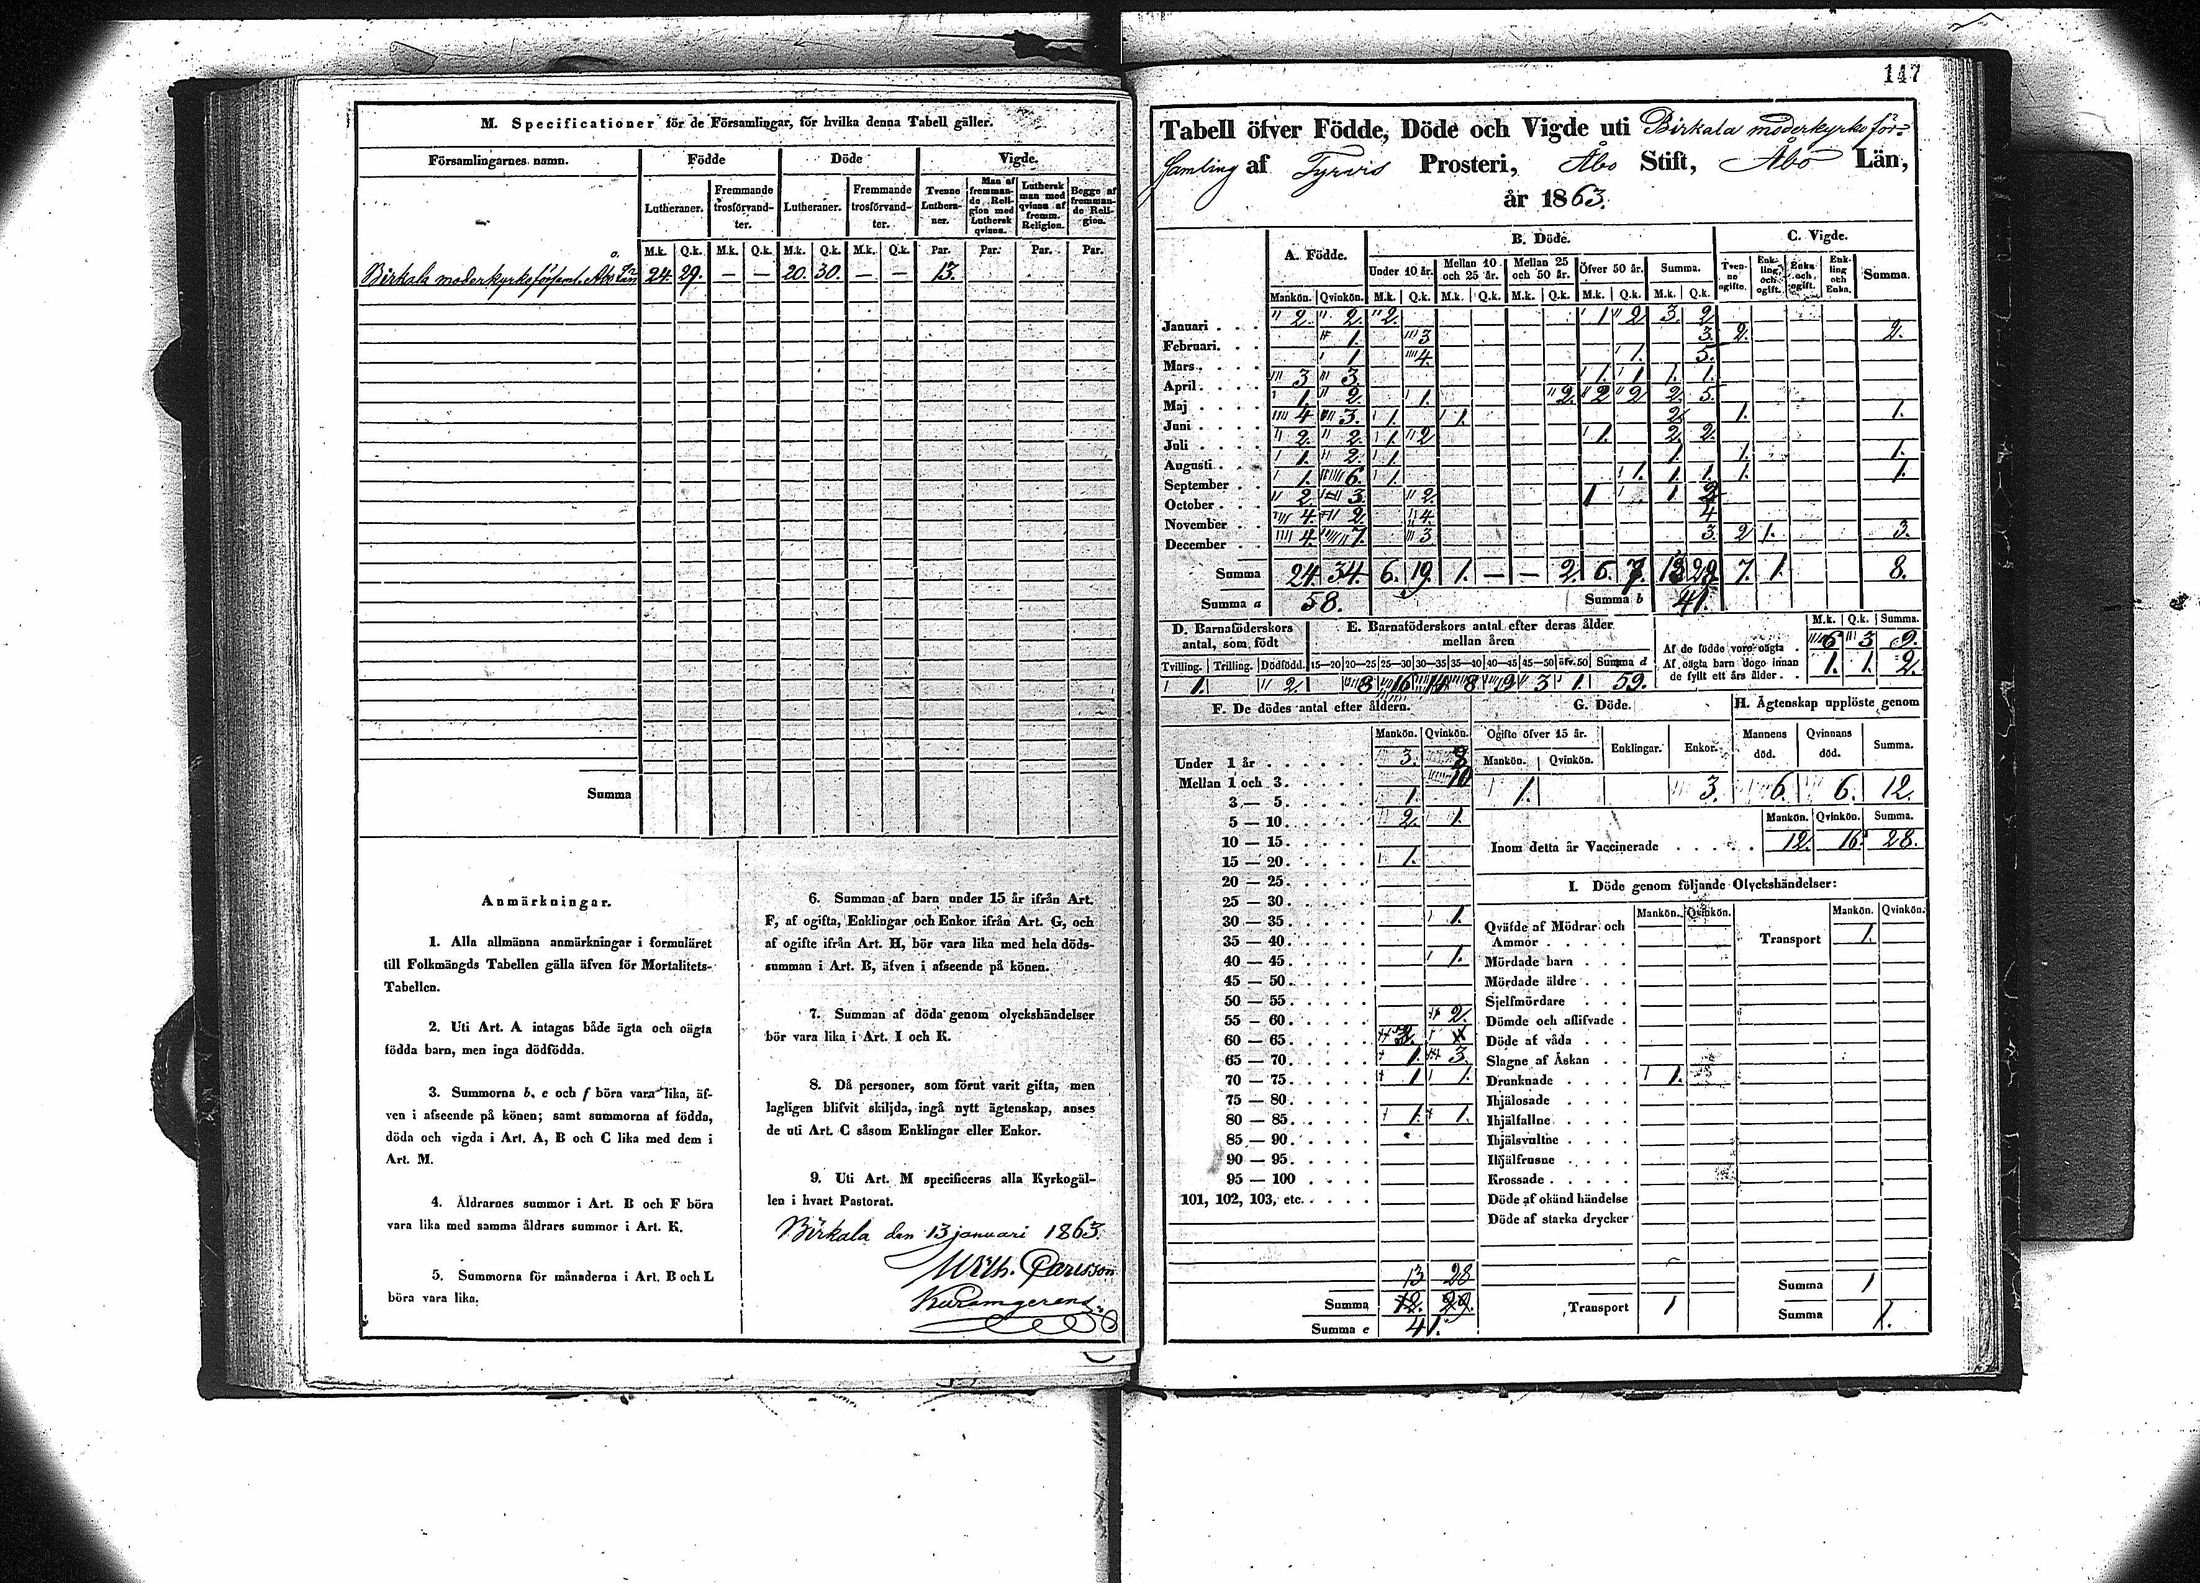 M. Specificationer för de Församlingar, för hvilka denna Tabell gäller.
Församlingarnes namn. Födde Döde Vigde.
Lutheraner. Fremmande trosförvandter. Lutheraner. Fremmande trosförvandter. Tvenne Lutheraner. Man af fremmande Religion med Luthersk qvinna. Luthersk man med qvinna af fremm. Religion. Begge af fremmande Religion.
M.k. Q.k. M.k. Q.k. M.k. Q.k. M.k. Q.k. Par. Par. Par. Par.
Birkala moderkyrkoförsaml. Åbo Län 24. 29. — — 20. 30. — — 13.
Summa
Anmärkningar.
1. Alla allmänna anmärkningar i formuläret
till Folkmängds Tabellen gälla äfven för Mortalitets-
Tabellen.
2. Uti Art. A intagas både ägta och oägta
födda barn, men inga dödfödda.
3. Summorna b, e och f böra vara lika, äf-
ven i afseende på könen; samt summorna af födda,
döda och vigda i Art. A, B och C lika med dem i
Art. M.
4. Åldrarnes summor i Art. B och F böra
vara lika med samma åldrars summor i Art. K.
5. Summorna för månaderna i Art. B och L
böra vara lika.
6. Summan af barn under 15 år ifrån Art.
F, af ogifta, Enklingar och Enkor ifrån Art. G, och
af ogifte ifrån Art. H, bör vara lika med hela döds-
summan i Art. B, äfven i afseende på könen.
7. Summan af döda genom olyckshändelser
bör vara lika i Art. I och K.
8. Då personer, som förut varit gifta, men
lagligen blifvit skiljda, ingå nytt ägtenskap, anses
de uti Art. C såsom Enklingar eller Enkor.
9. Uti Art. M specificeras alla Kyrkogäl-
len i hvart Pastorat.
Birkala den 13 januari 1863.
147
Tabell öfver Födde, Döde och Vigde uti Birkala moderkyrkoför-
samling af Tyrvis Prosteri, Åbo Stift, Åbo Län,
år 1863.
A. Födde. B. Döde. C. Vigde.
Under 10 år. Mellan 10 och 25 år. Mellan 25 och 50 år. Öfver 50 år. Summa. Tvenne ogifte. Enkling och ogift. Enka och ogift. Enkling och Enka. Summa.
Mankön. Qvinkön. M.k. Q.k. M.k. Q.k. M.k. Q.k. M.k. Q.k. M.k. Q.k.
Januari 2. 2. 2. 1 2 3. 2
Februari. 1. 3 3. 2. 2.
Mars 1 4. 1. 5.
April 3 3. 1. 1 1. 1.
Maj 1. 2. 1. 2. 2 2 2 5.
Juni 4 3. 1. 1. 2 1. 1.
Juli 2. 2. 1 2 1. 2 2.
Augusti 1. 2. 1 1. 1. 1.
September 1. 6. 1. 1. 1. 1. 1. 1.
October 2 3. 2. 1 1 2
November 4. 2. 4. 4
December 4. 7. 3 3. 2 1. 3.
Summa 24. 34. 6. 19. 1. — — 2. 6. 7. 13 28. 7. 1. 8.
Summa a 58. Summa b 41.
D. Barnaföderskors antal, som födt E. Barnaföderskors antal efter deras ålder mellan åren
M.k. Q.k. Summa.
Af de födde voro oägta 6 3 9.
Af oägta barn dogo innan de fyllt ett års ålder 1. 1. 2.
Tvilling. Trilling. Dödfödd. 15—20 20—25 25—30 30—35 35—40 40—45 45—50 öfv. 50 Summa d
1. 2. 8 16 14 8 9 3 1. 59.
F. De dödes antal efter åldern. G. Döde. H. Ägtenskap upplöste genom
Mankön. Qvinkön. Ogifte öfver 15 år. Enklingar. Enkor. Mannens död. Qvinnans död. Summa.
Mankön. Qvinkön.
1. 3. 6. 6. 12.
Mankön. Qvinkön. Summa.
Inom detta år Vaccinerade 12. 16. 28.
Under 1 år 3.
Mellan 1 och 3. 10
3 — 5. 1.
5 — 10. 2. 1.
10 — 15.
15 — 20. 1.
20 — 25.
25 — 30.
30 — 35. 1.
35 — 40.
40 — 45. 1.
45 — 50.
50 — 55.
55 — 60. 2.
60 — 65.
65 — 70. 1. 3.
70 — 75. 1 1.
75 — 80.
80 — 85. 1. 1.
85 — 90.
90 — 95.
95 — 100
101, 102, 103, etc.
13 28
Summa 12. 29.
Summa e 41.
I. Döde genom följande Olyckshändelser:
Mankön. Qvinkön. Mankön. Qvinkön.
Qväfde af Mödrar och Ammor
Transport 1.
Mördade barn
Mördade äldre
Sjelfmördare
Dömde och aflifvade
Döde af våda
Slagne af Åskan
Drunknade 1.
Ihjälosade
Ihjälfallne
Ihjälsvultne
Ihjälfrusne
Krossade
Döde af okänd händelse
Döde af starka drycker
Summa 1
Transport 1 Summa 1.